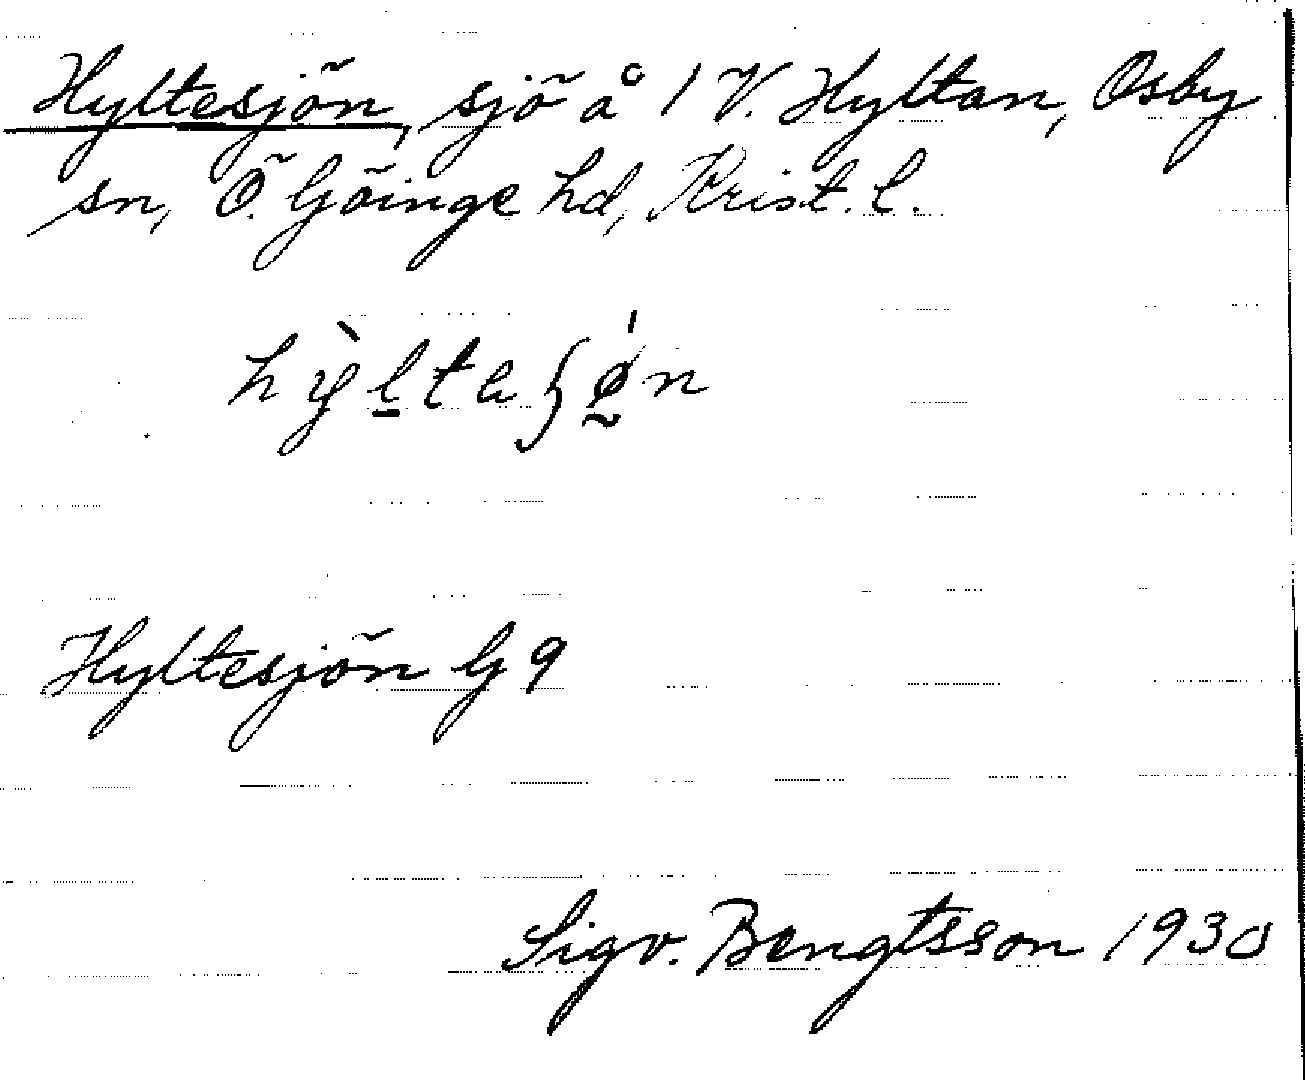 Hyltesjön, sjö å 1 V. Hyltan, Osby
sn, Ö. Göinge hd, Krist. l.
hỳltaʃǿn
Hyltesjön G 9
Sigv. Bengtsson 1930